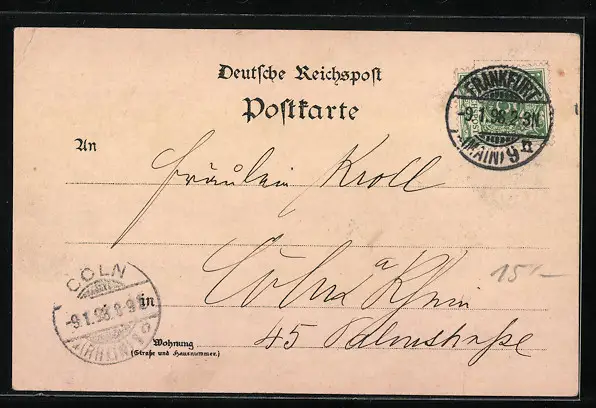 Deutsche Reichspost
Postkarte
FRANKFURT
-9.1.98.2-3N.
(MAIN) 9
An
Fräulein Kroll
Cöln a Rhein
15/-
CÖLN
-9.1.98.8-9
(RHEIN)
in
45 Palmstraße
Wohnung
(Straße und Hausnummer.)